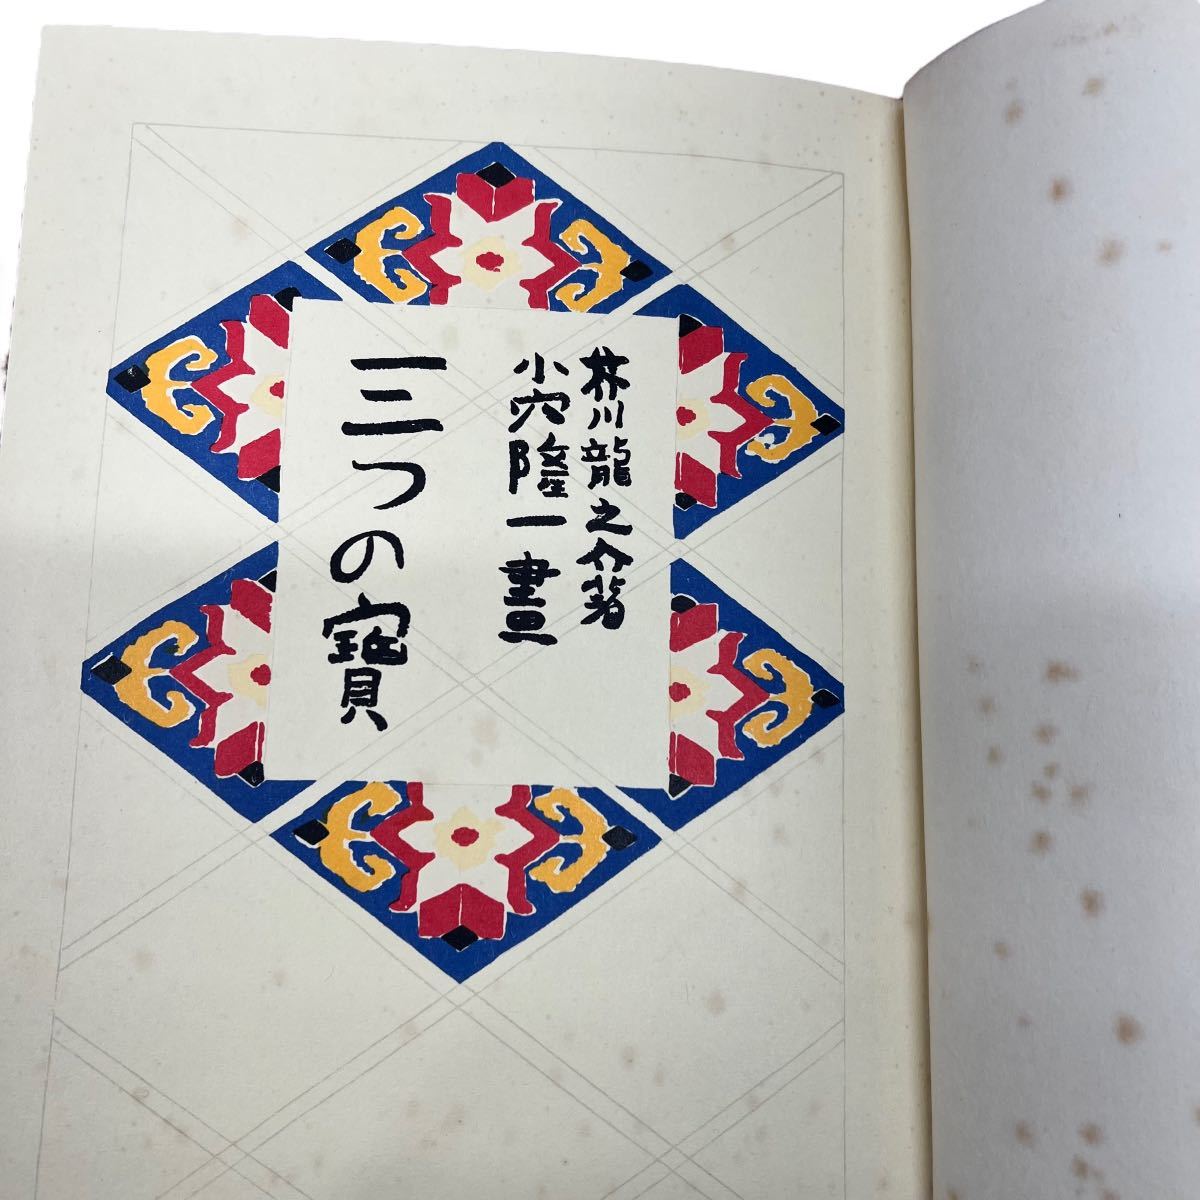 芥川龍之介著
小穴隆一畫
三つの寶